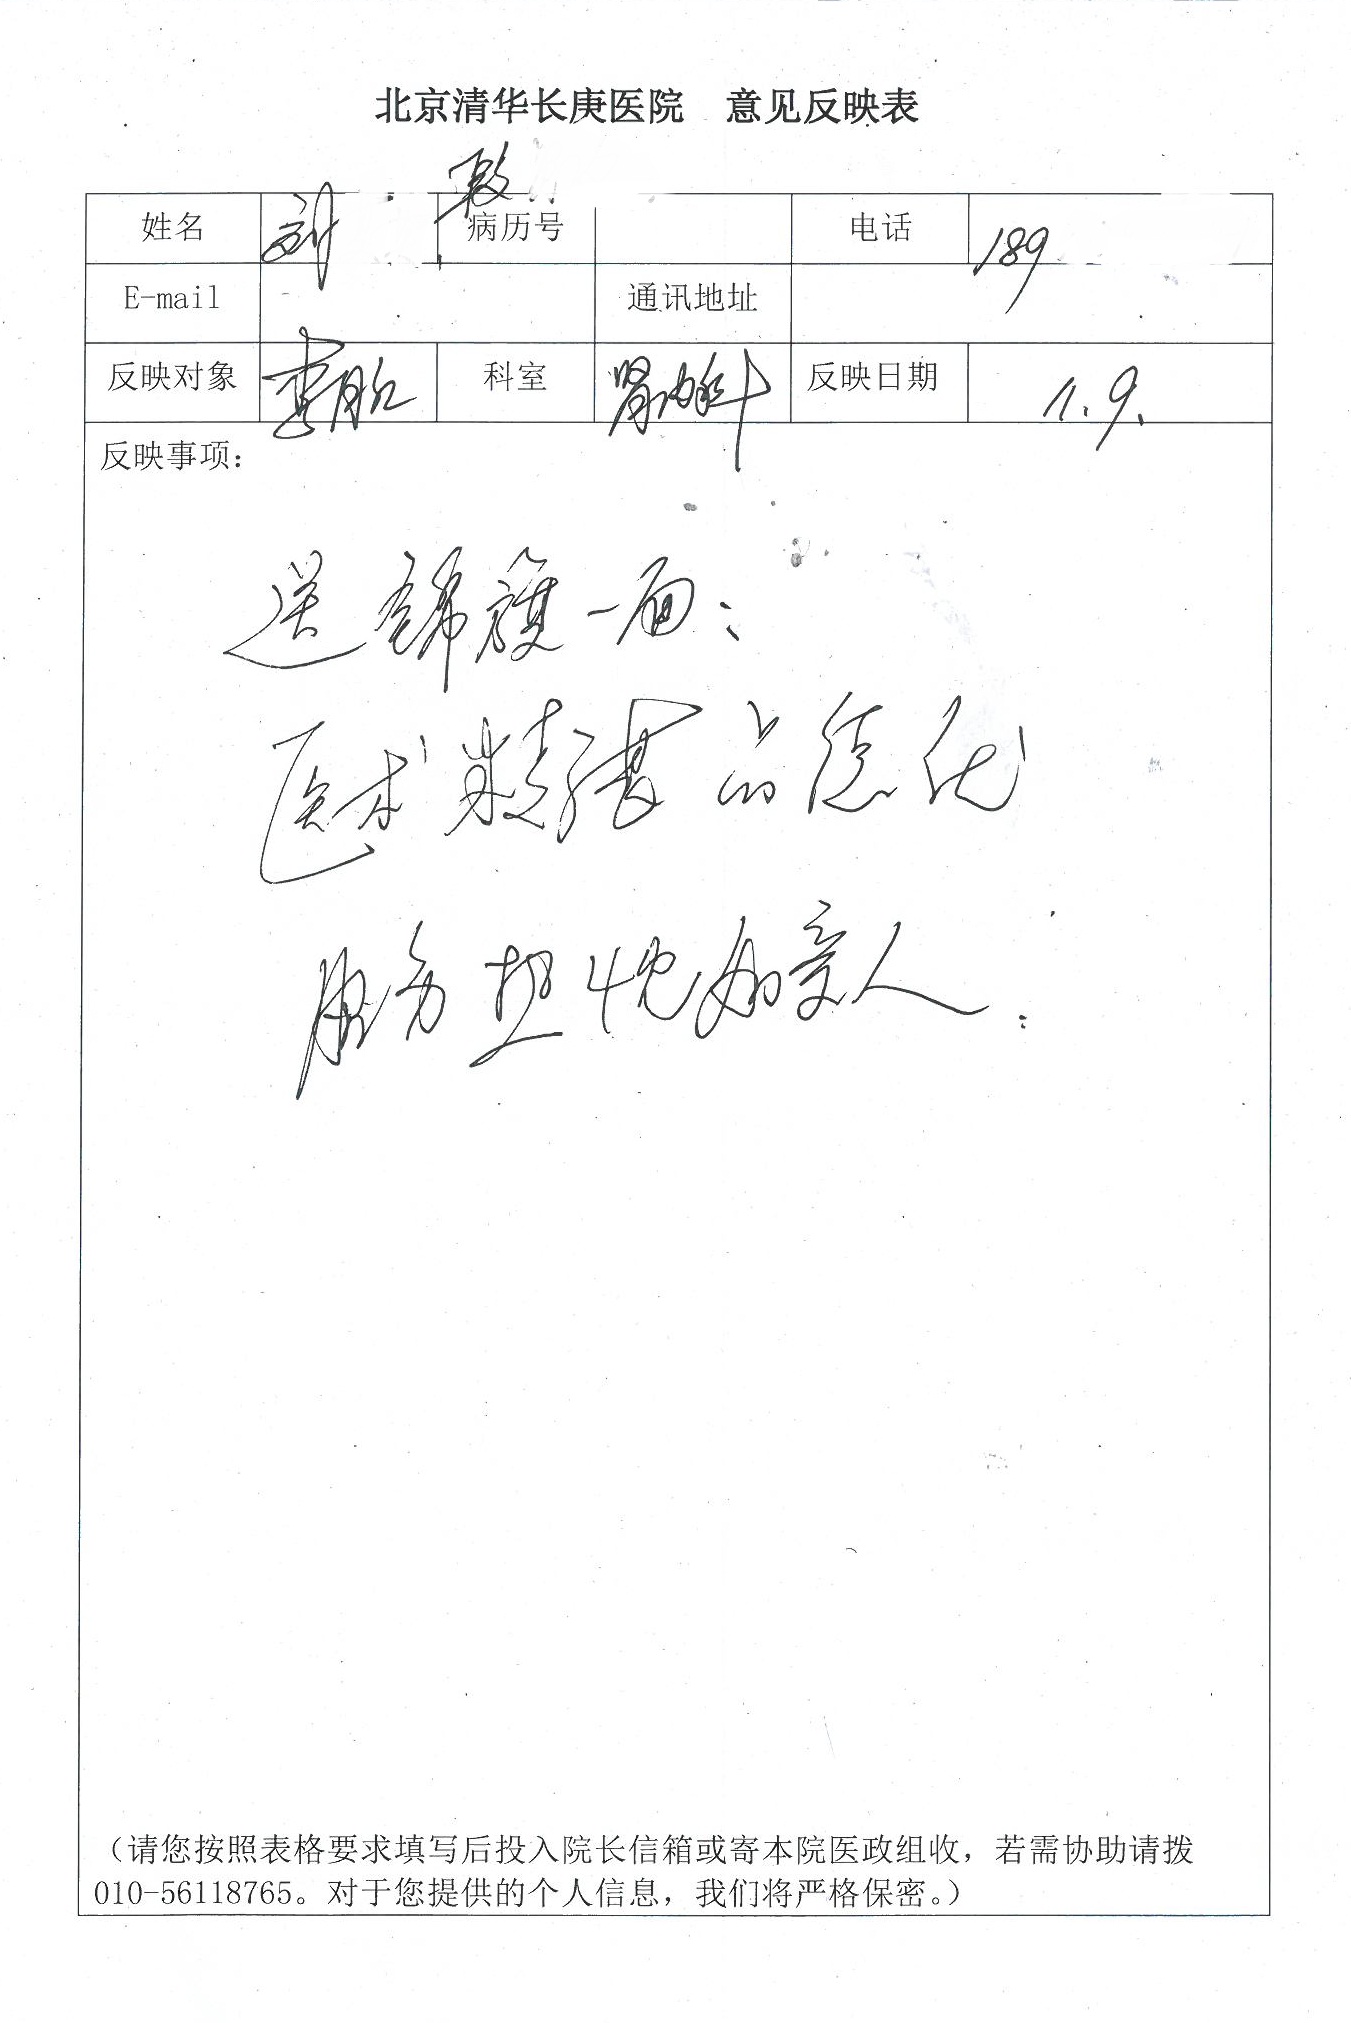 北京清华长庚医院 意见反映表
姓名 刘 病历号 电话 189
E-mail 通讯地址
反映对象 李月红 科室 肾内科 反映日期 1.9.
反映事项：
送锦旗一面：
医术精湛品德优
服务热忱如亲人.
（请您按照表格要求填写后投入院长信箱或寄本院医政组收，若需协助请拨
010-56118765。对于您提供的个人信息，我们将严格保密。）